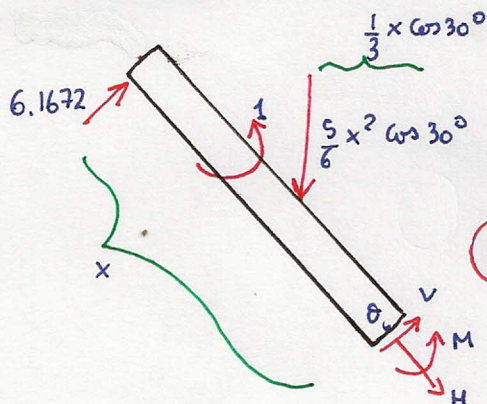 1/3 x cos30°
6.1672
1
5/6 x² cos30°
x
θ
V
M
H